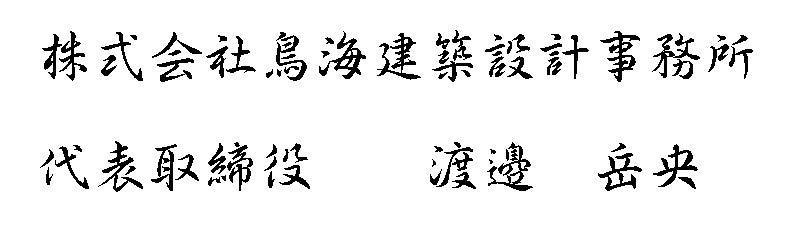 株式会社鳥海建築設計事務所
代表取締役　　渡邊　岳央